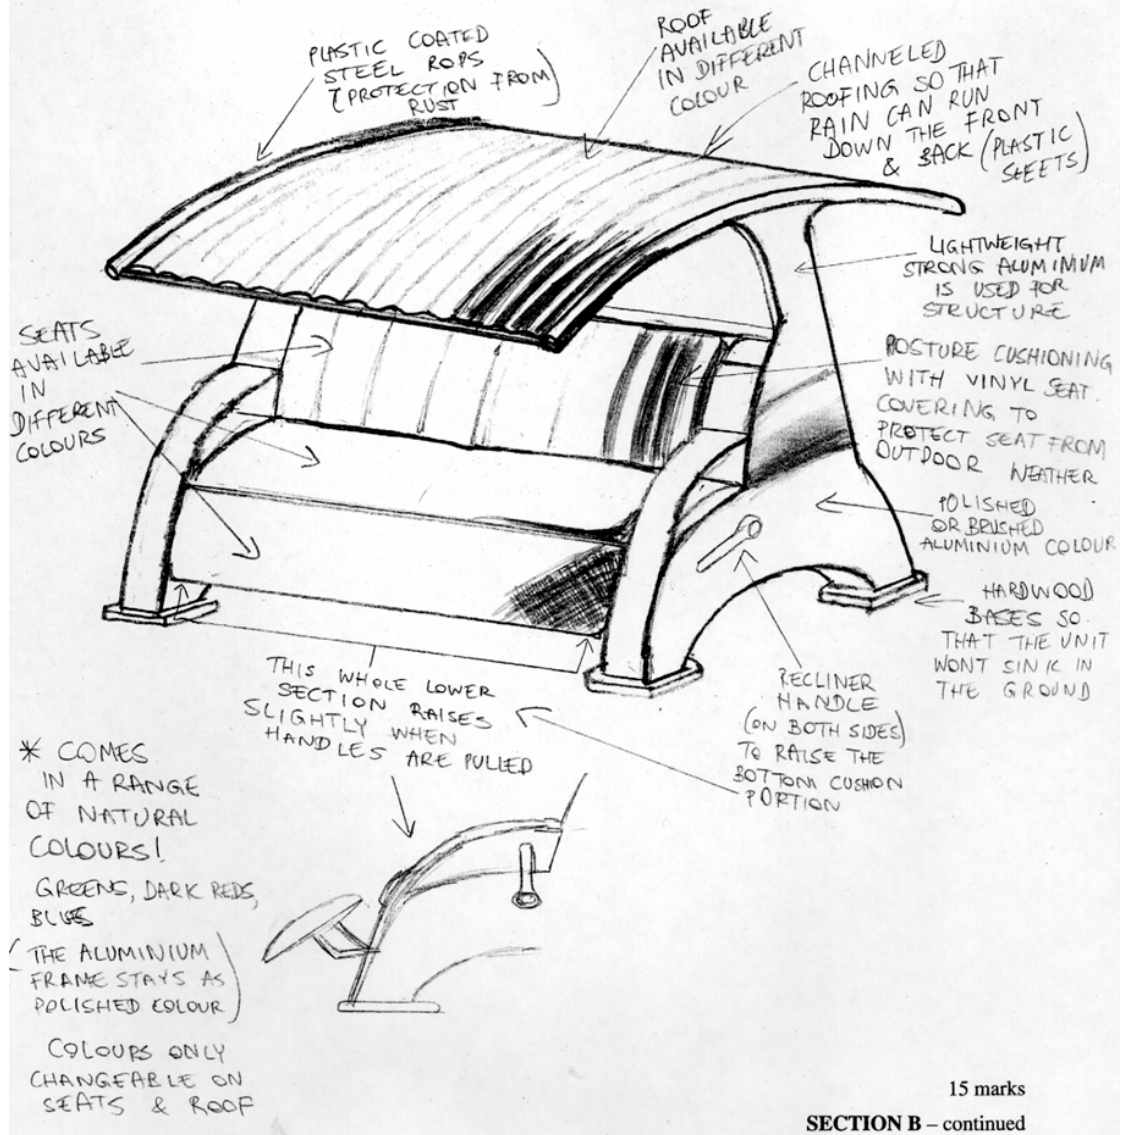 PLASTIC COATED
STEEL ROPS
(PROTECTION FROM)
RUST
ROOF
AVAILABLE
IN DIFFERENT
COLOUR
CHANNELED
ROOFING SO THAT
RAIN CAN RUN
DOWN THE FRONT
& BACK (PLASTIC
SEETS)
LIGHTWEIGHT
STRONG ALUMINIUM
IS USED FOR
STRUCTURE
SEATS
AVAILABLE
IN
DIFFERENT
COLOURS
POSTURE CUSHIONING
WITH VINYL SEAT
COVERING TO
PROTECT SEAT FROM
OUTDOOR WEATHER
POLISHED
OR BRUSHED
ALUMINIUM COLOUR
HARDWOOD
BASES SO
THAT THE UNIT
WONT SINK IN
THE GROUND
THIS WHOLE LOWER
SECTION RAISES
SLIGHTLY WHEN
HANDLES ARE PULLED
RECLINER
HANDLE
(ON BOTH SIDES)
TO RAISE THE
BOTTOM CUSHION
PORTION
* COMES
IN A RANGE
OF NATURAL
COLOURS!
GREENS, DARK REDS,
BLUES
(THE ALUMINIUM
FRAME STAYS AS
POLISHED COLOUR)
COLOURS ONLY
CHANGEABLE ON
SEATS & ROOF
15 marks
SECTION B – continued